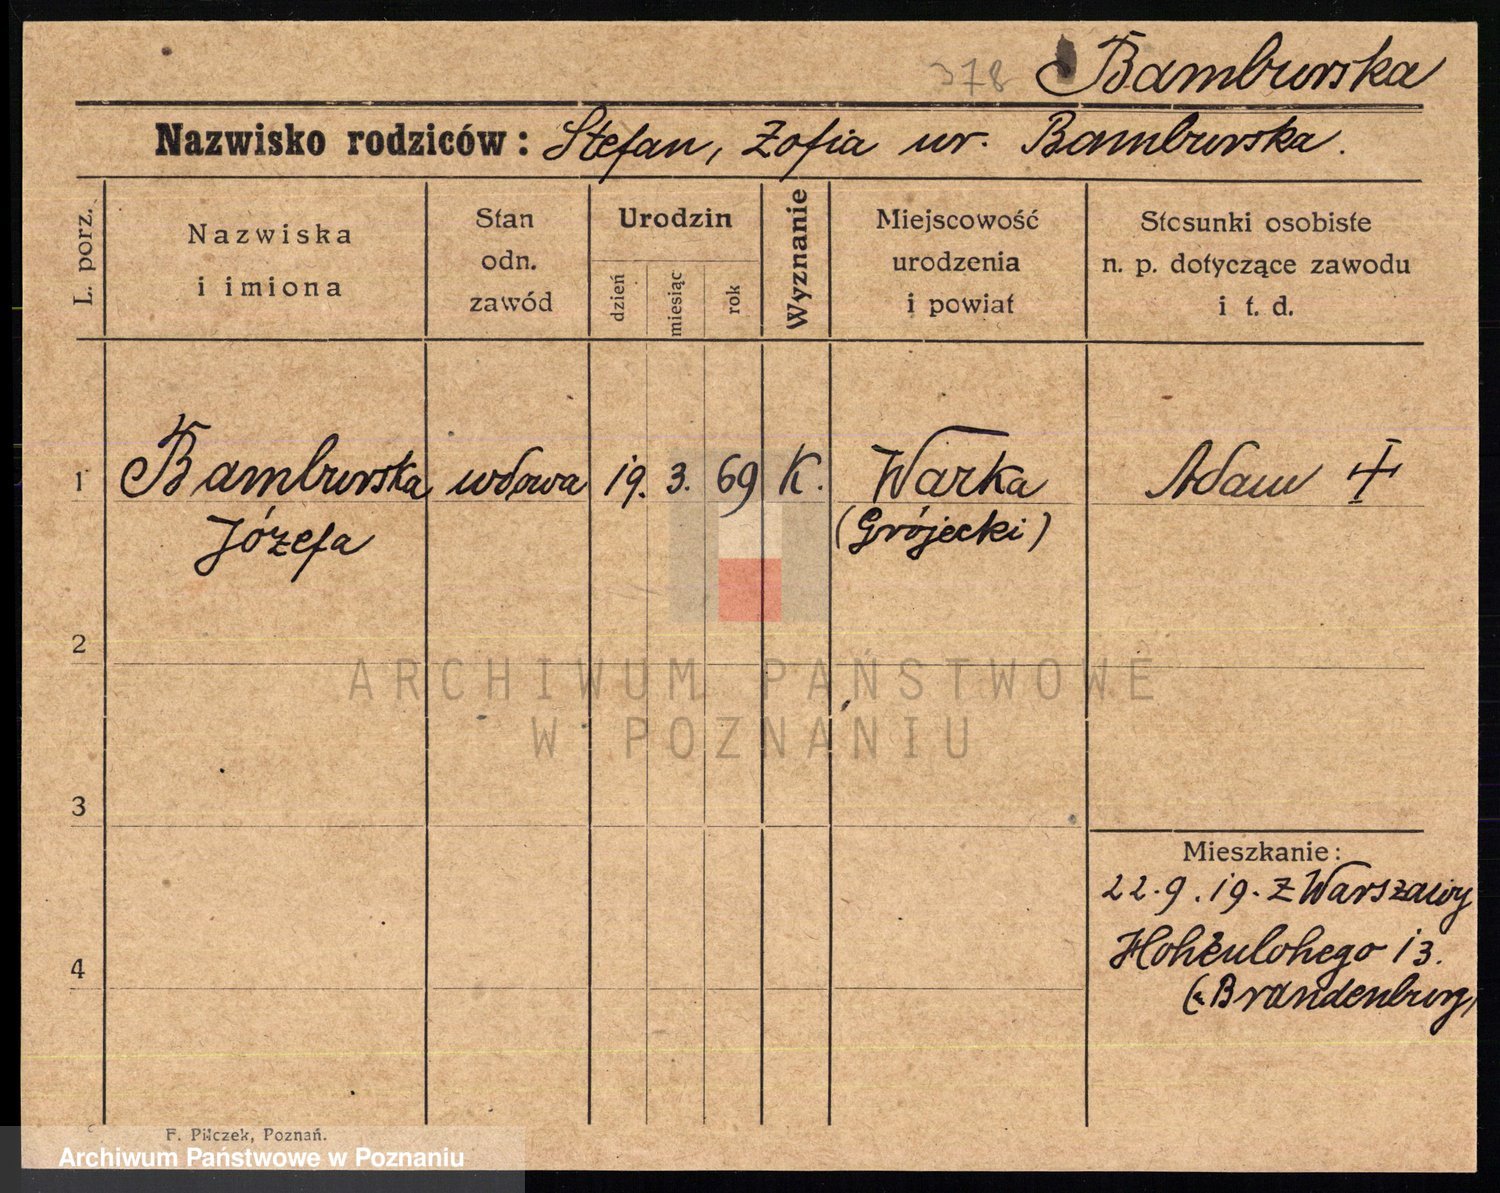 378 Bamburska
Nazwisko rodziców: Stefan, Zofia ur. Bamburska.
L. porz.
Nazwiska
i imiona
Stan
odn.
zawód
Urodzin
dzień
miesiąc
rok
Wyznanie
Miejscowość
urodzenia
i powiat
Stosunki osobiste
n. p. dotyczące zawodu
i t. d.
1 Bamburska wdowa 19. 3. 69 K. Warka Adam
Józefa (Grójecki)
2
3
4
Mieszkanie:
22.9.19. z Warszawy
Hohenlohego 13.
Brandenburg)
ARCHIWUM PAŃSTWOWE
W POZNANIU
F. Pilczek, Poznań.
Archiwum Państwowe w Poznaniu